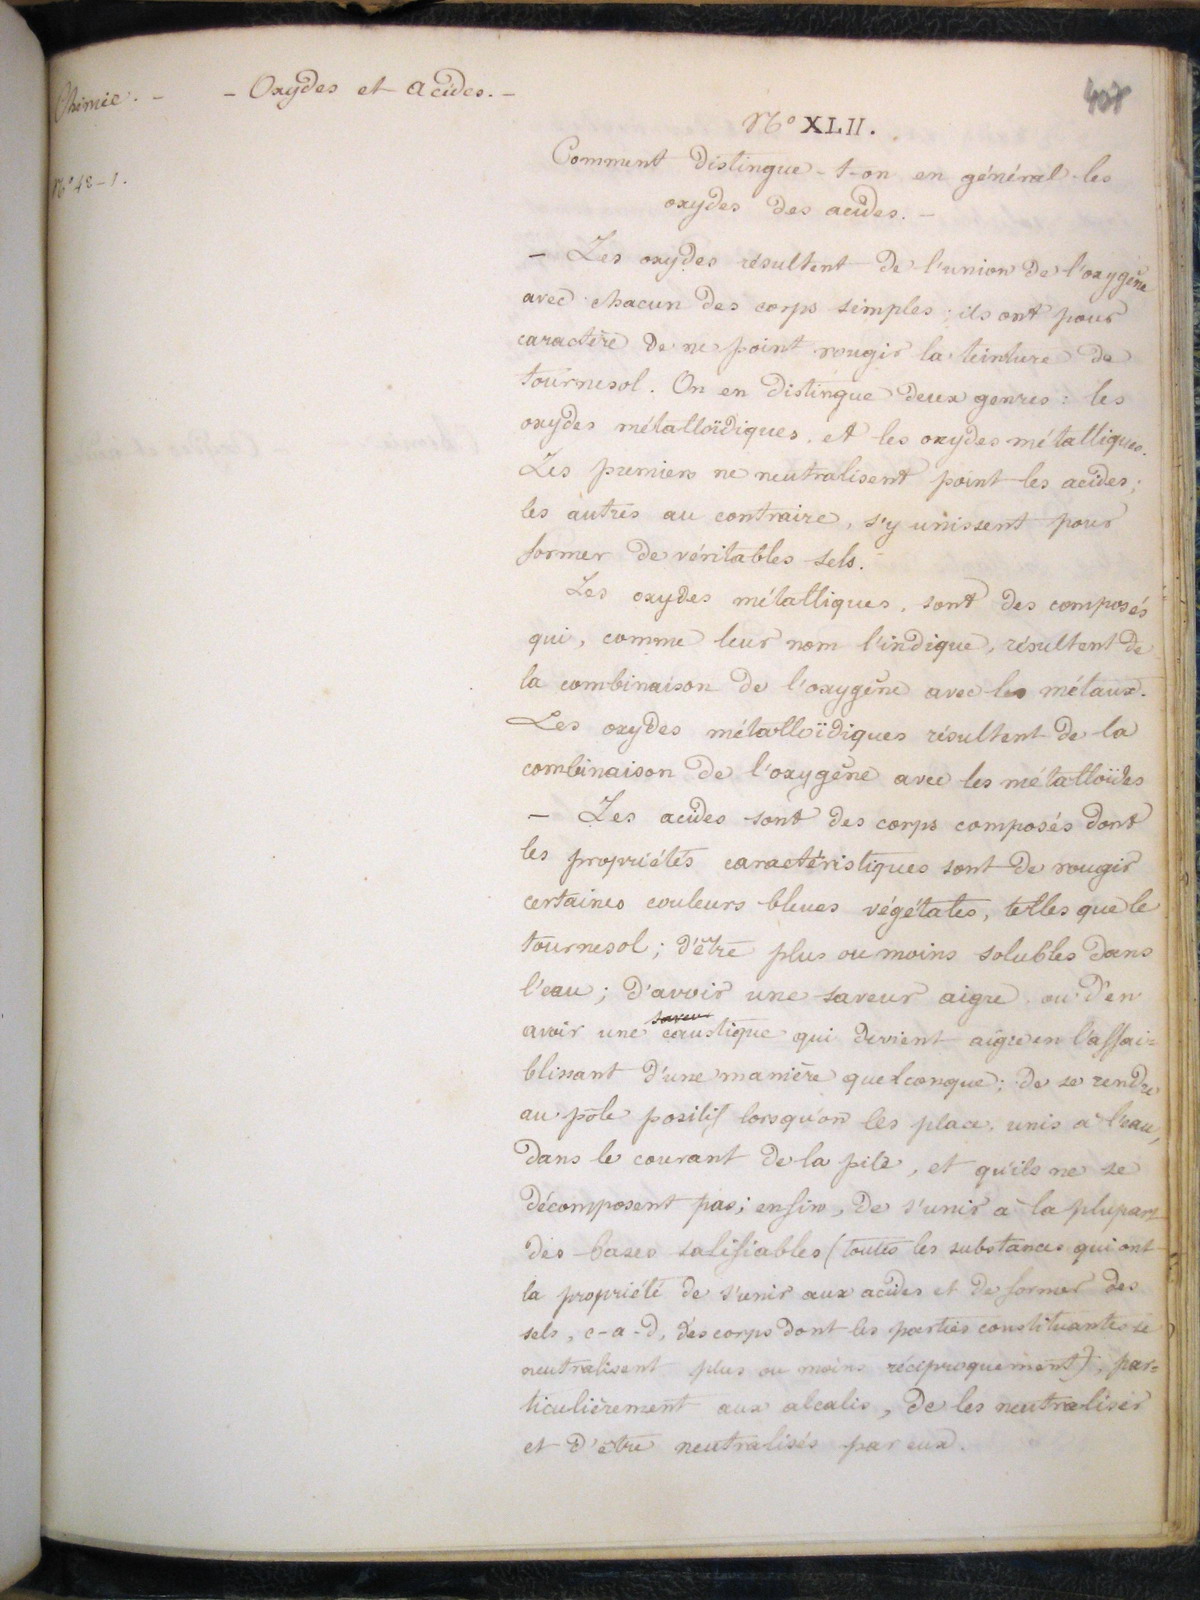 Chimie. - - Oxydes et Acides. -
407
N° XLII.
N° 42-1.
Comment distingue-t-on en général les
oxydes des acides. -
- Les oxydes résultent de l'union de l'oxygène
avec chacun des corps simples ; ils ont pour
caractère de ne point rougir la teinture de
tournesol. On en distingue deux genres : les
oxydes métalloïdiques, et les oxydes métalliques.
Les premiers ne neutralisent point les acides ;
les autres au contraire, s'y unissent pour
former de véritables sels.
Les oxydes métalliques, sont des composés
qui, comme leur nom l'indique, résultent de
la combinaison de l'oxygène avec les métaux.
Les oxydes métalloïdiques résultent de la
combinaison de l'oxygène avec les métalloïdes
- Les acides sont des corps composés dont
les propriétés caractéristiques sont de rougir
certaines couleurs bleues végétales, telles que le
tournesol ; d'être plus ou moins solubles dans
l'eau ; d'avoir une saveur aigre ou d'en
avoir une saveur caustique qui devient aigre en l'affai=
blissant d'une manière quelconque ; de se rendre
au pôle positif lorsqu'on les place, unis à l'eau,
dans le courant de la pile, et qu'ils ne se
décomposent pas ; enfin, de s'unir à la plupart
des bases salifiables (toutes les substances qui ont
la propriété de s'unir aux acides et de former des
sels, c-a-d, des corps dont les parties constituantes se
neutralisent plus ou moins réciproquement), par=
ticulièrement aux alcalis, de les neutraliser
et d'être neutralisés par eux.